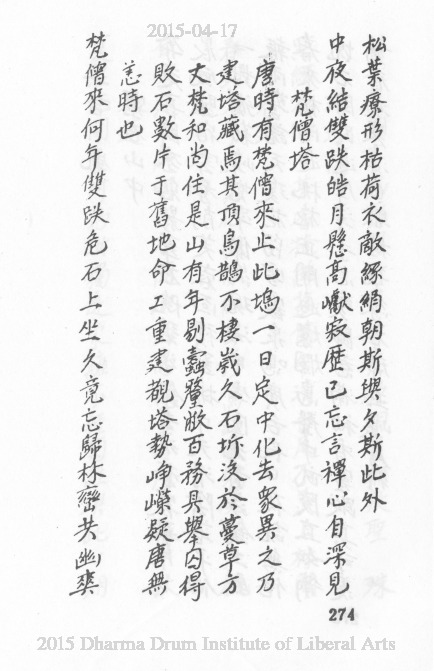 2015-04-17
松葉療形枯荷衣敵縑絹朝斯與夕斯此外
中夜結雙趺皓月懸高巘寂歷已忘言禪心自深見
梵僧塔
唐時有梵僧來止此塢一日定中化去衆異之乃
建塔藏焉其頂烏鵲不棲歲久石圻沒於蔓草方
丈梵和尚住是山有年剔蠹釐敝百務具舉因得
敗石數片于舊地命工重建觀塔勢崢嶸疑唐無
恙時也
梵僧來何年雙趺危石上坐久竟忘歸林巒共幽爽
274
2015 Dharma Drum Institute of Liberal Arts